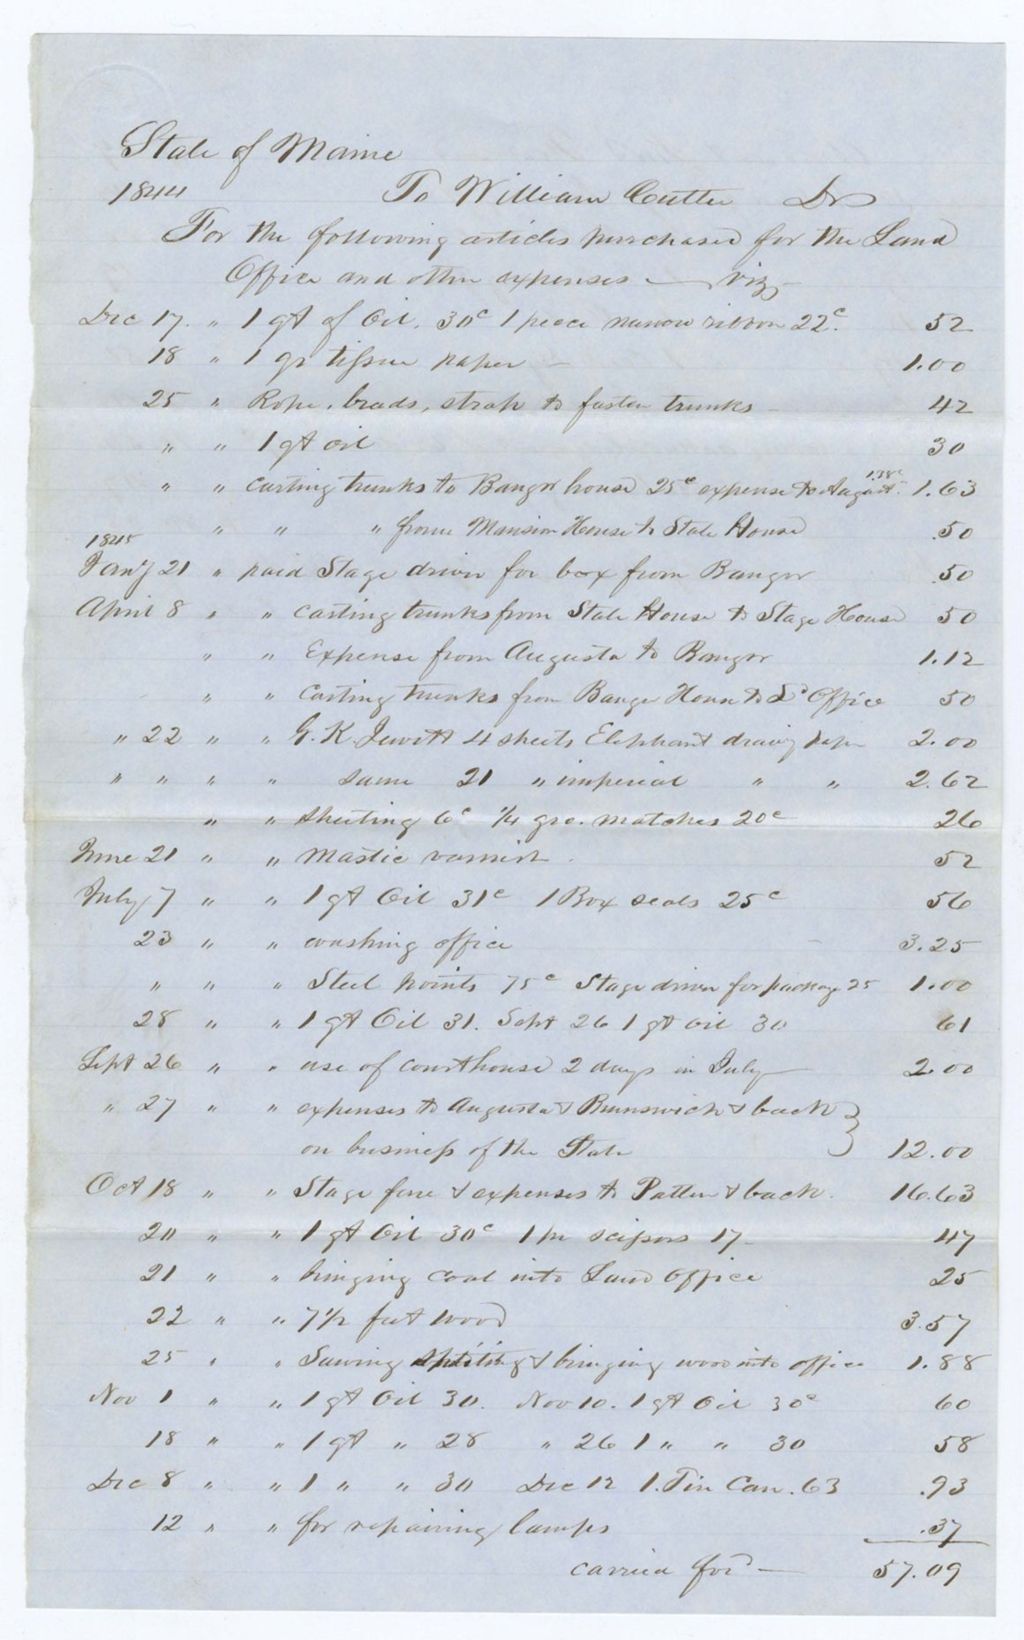 State of Maine
1844 To William Cutter Dr
For the following articles purchased for the Land
Office and other expenses — viz,
Dec 17. " 1 qt of Oil. 30c 1 peece narrow ribbon 22c. 52
18 " 1 qr tissue paper - 1.00
25 " Rope, brads, strap to fasten trunks - 42
" " 1 qt oil 30
" " carting trunks to Bangor house 25c expense to August. 138c 1.63
" " " from Mansion House to State House .50
1845
Jany 21 " paid Stage driver for box from Bangor .50
April 8 " " carting trunks from State House to Stage House 50
" " Expense from Augusta to Bangor 1.12
" " carting trunks from Bangor House to Ld Office 50
" 22 " " G. K. Jewett 4 sheets Elephant drawg paper 2.00
" " " " same 21 " imperial " " 2.62
" " sheeting 6c 1/4 gro. matches 20c 26
June 21 " " mastic varnish . 52
July 7 " " 1 qt Oil 31c 1 Box seals 25c 56
23 " " washing office - 3.25
" " " Steel points 75c Stage driver for package 25 1.00
28 " " 1 qt Oil 31. Sept 26 1 qt oil 30 61
Sept 26 " " use of courthouse 2 days in July 2.00
" 27 " " expenses to Augusta & Brunswick & back }
on business of the State 12.00
Oct 18 " " Stage fare & expenses to Patten & back. 16.63
20 " " 1 qt Oil 30c 1 pr scissors 17 47
21 " " bringing coal into Land Office 25
22 " " 7 1/2 feet wood 3.57
25 " " Sawing splitting & bringing wood into office 1.88
Nov 1 " " 1 qt Oil 30. Nov 10. 1 qt Oil 30c 60
18 " " 1 qt " 28 " 26 1 " " 30 58
Dec 8 " " 1 " " 30 Dec 12 1. Tin Can. 63 .93
12 " " for repairing lamps .37
carried for'd — 57.09